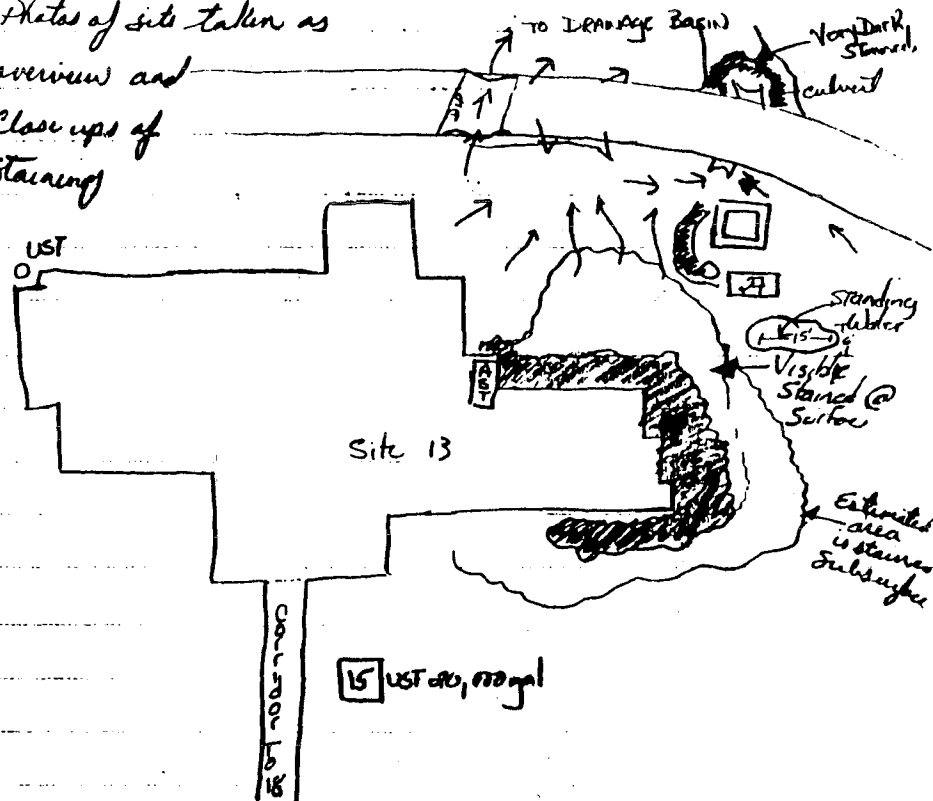 Photos of site taken as
overview and
Close ups of
Staining
TO DRANAGE BASIN
Very Dark
Stained
culvert
UST
27
Standing
Water
15'
Visible
Stained @
Surface
AST
Site 13
Estimated
area
is stained
Subsurface
Corridor To 18
15
UST gal